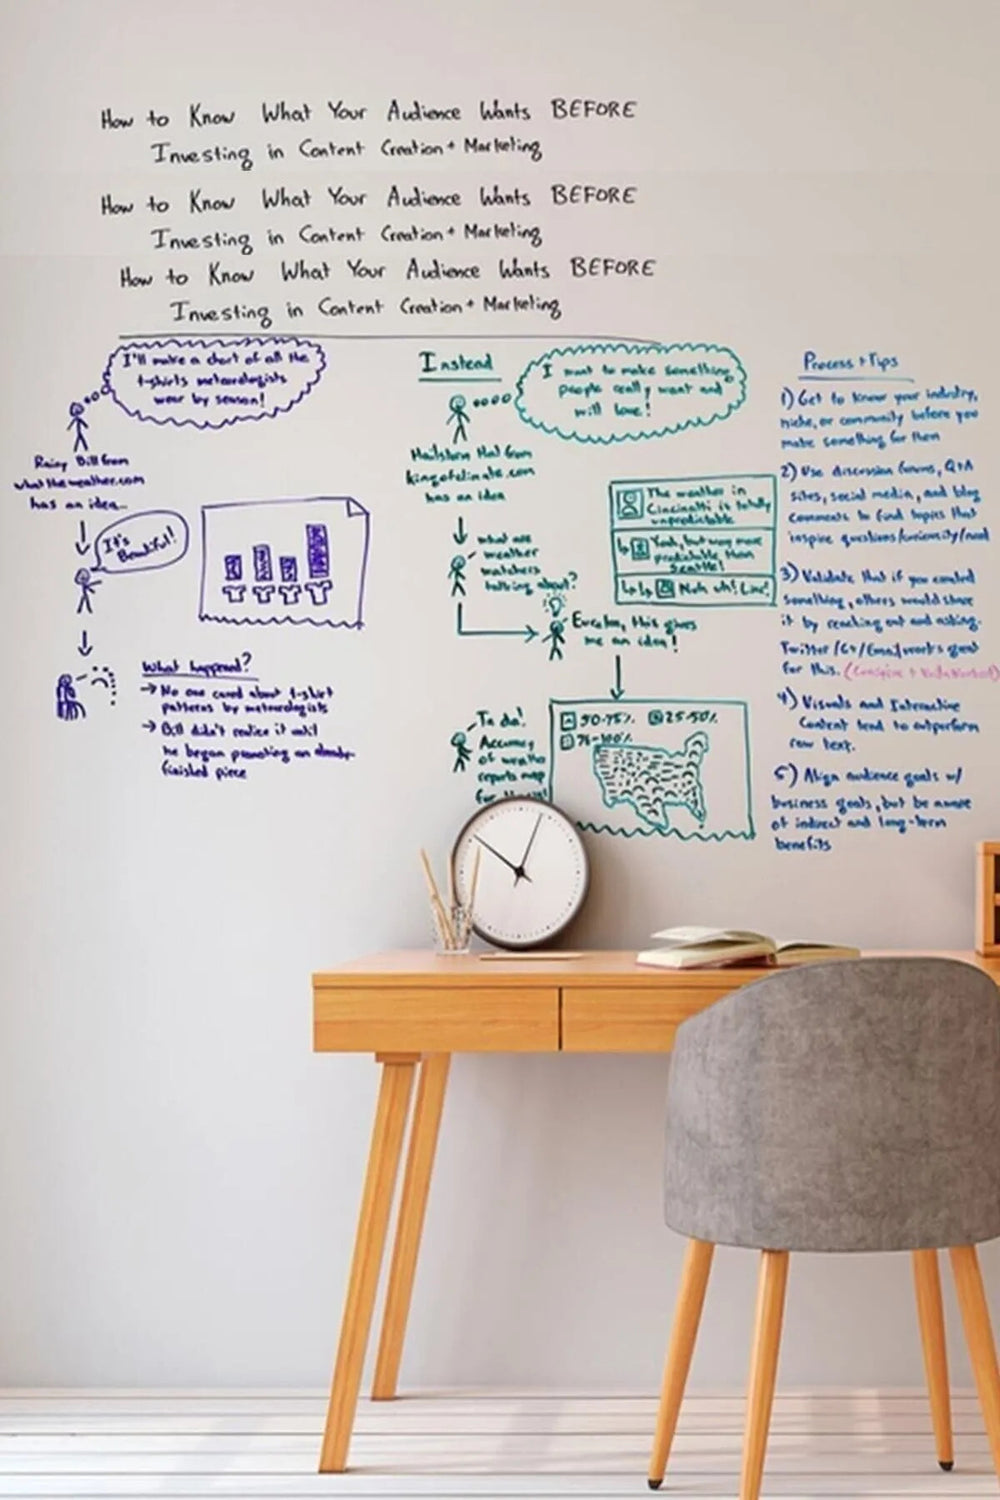 How to Know What Your Audience Wants BEFORE
Investing in Content Creation + Marketing
How to Know What Your Audience Wants BEFORE
Investing in Content Creation + Marketing
How to Know What Your Audience Wants BEFORE
Investing in Content Creation + Marketing
I'll make a chart of all the
t-shirts meteorologists
wear by season!
Rainy Bill from
whattheweather.com
has an idea...
It's
Beautiful!
What happened?
→ No one cared about t-shirt
patterns by meteorologists
→ Bill didn't realize it until
he began promoting an already-
finished piece
Instead
I want to make something
people really want and
will love!
Hailstorm Hal from
kingofclimate.com
has an idea
what are
weather
watchers
talking about?
The weather in
Cincinatti is totally
unpredictable
Yeah, but way more
predictable than
Seattle!
Nuh uh! Liar!
Eureka, this gives
me an idea!
Ta da!
Accuracy
of weather
reports map
for
50-75% 25-50%
75-100%
Process + Tips
1) Get to know your industry,
niche, or community before you
make something for them
2) Use discussion forums, Q+A
sites, social media, and blog
comments to find topics that
inspire questions/curiosity/need
3) Validate that if you created
something, others would share
it by reaching out and asking.
Twitter/G+/Email works great
for this.
4) Visuals and Interactive
Content tend to outperform
raw text.
5) Align audience goals w/
business goals, but be aware
of indirect and long-term
benefits